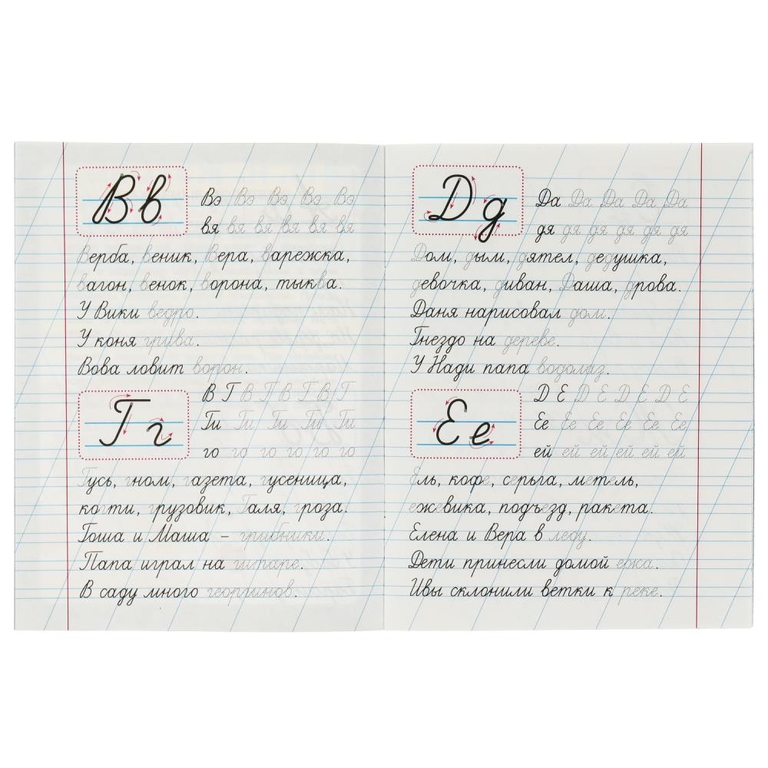 Вв
Вэ Вэ Вэ Вэ Вэ
вя вя вя вя вя вя
Верба, веник, Вера, варежка,
вагон, венок, ворона, тыква.
У Вики ведро.
У коня грива.
Вова ловит ворон.
Гг
В Г В Г В Г В Г
Ги Ги Ги Ги Ги
го го го го го го
Гусь, гном, газета, гусеница,
когти, грузовик, Галя, гроза.
Гоша и Маша – грибники.
Папа играл на гитаре.
В саду много георгинов.
Дд
Да Да Да Да Да
дя дя дя дя дя дя
Дом, дым, дятел, дедушка,
девочка, диван, Даша, дрова.
Даня нарисовал дом.
Гнездо на дереве.
У Нади папа водолаз.
Ее
Д Е Д Е Д Е Д Е
Ее Ее Ее Ее Ее Ее
ей ей ей ей ей ей
Ель, кофе, серьга, метель,
ежевика, подъезд, ракета.
Елена и Вера в леду.
Дети принесли домой ежа.
Ивы склонили ветки к реке.